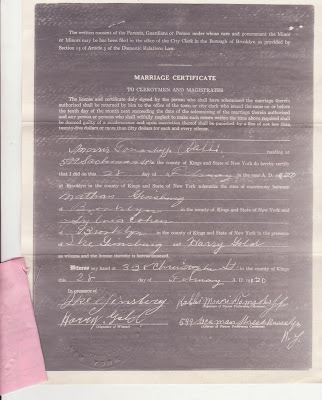 The written consent of the Parents, Guardians or Person under whose care and government the Minor
or Minors may be has been filed in the office of the City Clerk in the Borough of Brooklyn, as provided by
Section 15 of Article 3 of the Domestic Relations Law.
MARRIAGE CERTIFICATE
TO CLERGYMEN AND MAGISTRATES
The license and certificate duly signed by the person who shall have solemnized the marriage therein
authorized shall be returned by him to the office of the town or city clerk who issued the same on or before
the tenth day of the month next succeeding the date of the solemnizing of the marriage therein authorized
and any person or persons who shall wilfully neglect to make such return within the time above required shall
be deemed guilty of a misdemeanor and upon conviction thereof shall be punished by a fine of not less than
twenty-five dollars or more than fifty dollars for each and every offense.
I, Morris residing at
county of Kings and State of New York do hereby certify
that I did on this 28 day of in the year A. D. 1920
at Brooklyn in the county of Kings and State of New York solemnize the rites of matrimony between
Nathan Ginsburg
of Brooklyn in the county of Kings and State of New York and
Cohen
of Brooklyn in the county of Kings and State of New York in the presence
of Ike Ginsburg and Harry Gold
as witnesses and the license therefor is hereto annexed.
Witness my hand at in the county of Kings
this 28 day of February A. D. 1920
In presence of
Ike Ginsberg Rabbi Morris
(Signature of Person Performing Ceremony)
Harry Gold 599 Street Brooklyn
(Signature of Witness) (Address of Person Performing Ceremony)
N.Y.